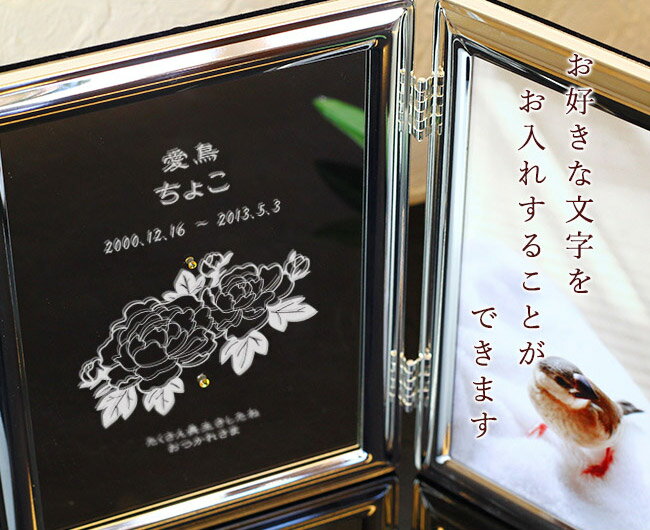 愛鳥
ちょこ
2000.12.16 ～ 2013.5.3
たくさん長生きしたね
おつかれさま
お好きな文字を
お入れすることが
できます